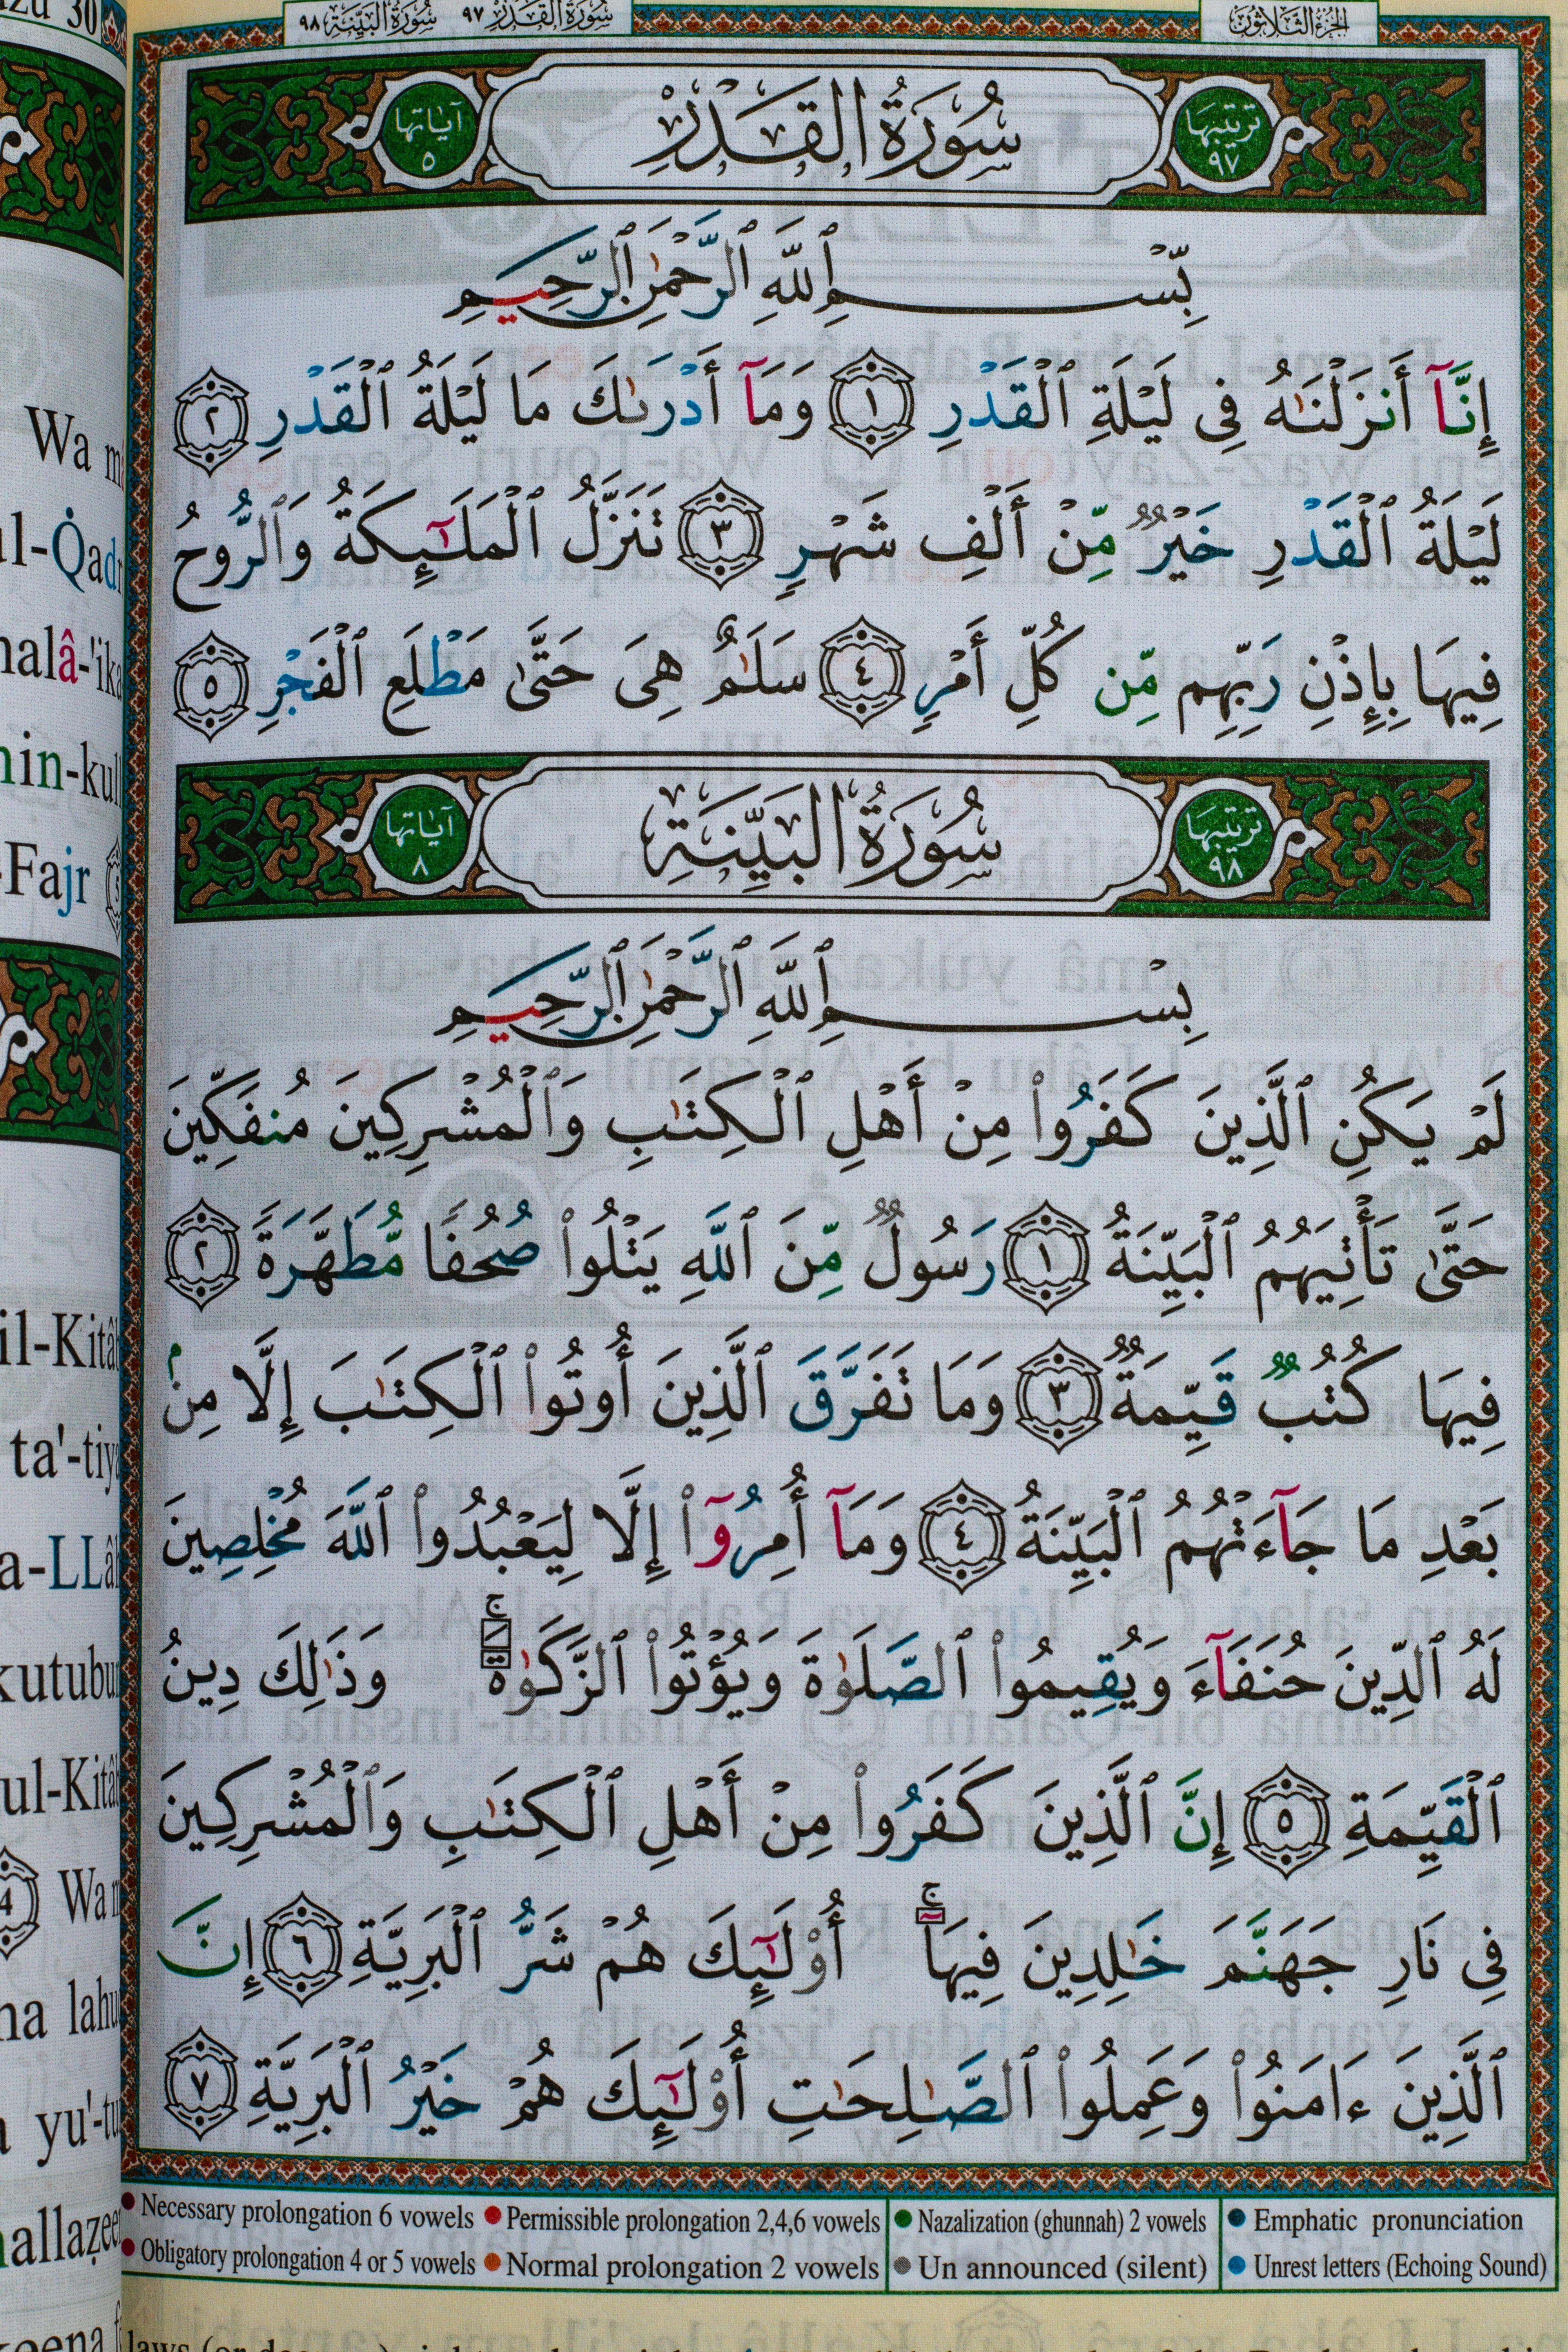 سُورَةُ البَيِّنَةِ ٩٨ سُورَةُ القَدْرِ ٩٧
الجزء الثلاثون
ترتيبها ٩٧
سُورَةُ القَدْرِ
آياتها ٥
بِّسْمِ ٱللَّهِ ٱلرَّحْمَٰنِ ٱلرَّحِيمِ
إِنَّآ أَنزَلْنَٰهُ فِى لَيْلَةِ ٱلْقَدْرِ ١ وَمَآ أَدْرَىٰكَ مَا لَيْلَةُ ٱلْقَدْرِ ٢
لَيْلَةُ ٱلْقَدْرِ خَيْرٌ مِّنْ أَلْفِ شَهْرٍ ٣ تَنَزَّلُ ٱلْمَلَٰٓئِكَةُ وَٱلرُّوحُ
فِيهَا بِإِذْنِ رَبِّهِم مِّن كُلِّ أَمْرٍ ٤ سَلَٰمٌ هِىَ حَتَّىٰ مَطْلَعِ ٱلْفَجْرِ ٥
ترتيبها ٩٨
سُورَةُ البَيِّنَةِ
آياتها ٨
بِسْمِ ٱللَّهِ ٱلرَّحْمَٰنِ ٱلرَّحِيمِ
لَمْ يَكُنِ ٱلَّذِينَ كَفَرُوا۟ مِنْ أَهْلِ ٱلْكِتَٰبِ وَٱلْمُشْرِكِينَ مُنفَكِّينَ
حَتَّىٰ تَأْتِيَهُمُ ٱلْبَيِّنَةُ ١ رَسُولٌ مِّنَ ٱللَّهِ يَتْلُوا۟ صُحُفًا مُّطَهَّرَةً ٢
فِيهَا كُتُبٌ قَيِّمَةٌ ٣ وَمَا تَفَرَّقَ ٱلَّذِينَ أُوتُوا۟ ٱلْكِتَٰبَ إِلَّا مِنۢ
بَعْدِ مَا جَآءَتْهُمُ ٱلْبَيِّنَةُ ٤ وَمَآ أُمِرُوٓا۟ إِلَّا لِيَعْبُدُوا۟ ٱللَّهَ مُخْلِصِينَ
لَهُ ٱلدِّينَ حُنَفَآءَ وَيُقِيمُوا۟ ٱلصَّلَوٰةَ وَيُؤْتُوا۟ ٱلزَّكَوٰةَ ۚ وَذَٰلِكَ دِينُ
ٱلْقَيِّمَةِ ٥ إِنَّ ٱلَّذِينَ كَفَرُوا۟ مِنْ أَهْلِ ٱلْكِتَٰبِ وَٱلْمُشْرِكِينَ
فِى نَارِ جَهَنَّمَ خَٰلِدِينَ فِيهَآ ۚ أُو۟لَٰٓئِكَ هُمْ شَرُّ ٱلْبَرِيَّةِ ٦ إِنَّ
ٱلَّذِينَ ءَامَنُوا۟ وَعَمِلُوا۟ ٱلصَّٰلِحَٰتِ أُو۟لَٰٓئِكَ هُمْ خَيْرُ ٱلْبَرِيَّةِ ٧
Necessary prolongation 6 vowels Permissible prolongation 2,4,6 vowels Nazalization (ghunnah) 2 vowels Emphatic pronunciation
Obligatory prolongation 4 or 5 vowels Normal prolongation 2 vowels Un announced (silent) Unrest letters (Echoing Sound)
30
Wa
-Fajr
ta'-